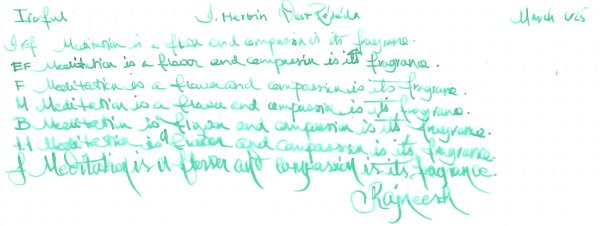 Iroful J. Herbin Vert Réséda March 4/25
1 EF Meditation is a flower and compassion is its fragrance.
EF Meditation is a flower and compassion is its fragrance.
F Meditation is a flower and compassion is its fragrance.
M Meditation is a flower and compassion is its fragrance.
B Meditation is flower and compassion is its fragrance.
1.1 Meditation is a flower and compassion is its fragrance.
f Meditation is a flower and compassion is its fragrance.
Rajneesh